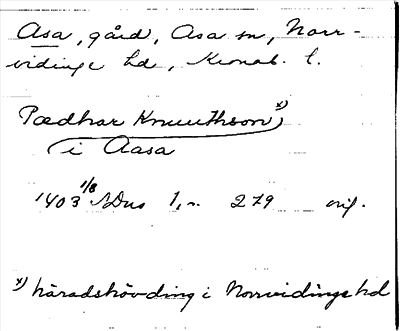 Asa, gård, Asa sn, Norr-
vidinge hd, Kronob. l.
Pædhar Knwthson x)
i Aasa
1403 1/8 SDns 1, n. 279 orig.
x) häradshövding i Norrvidinge hd